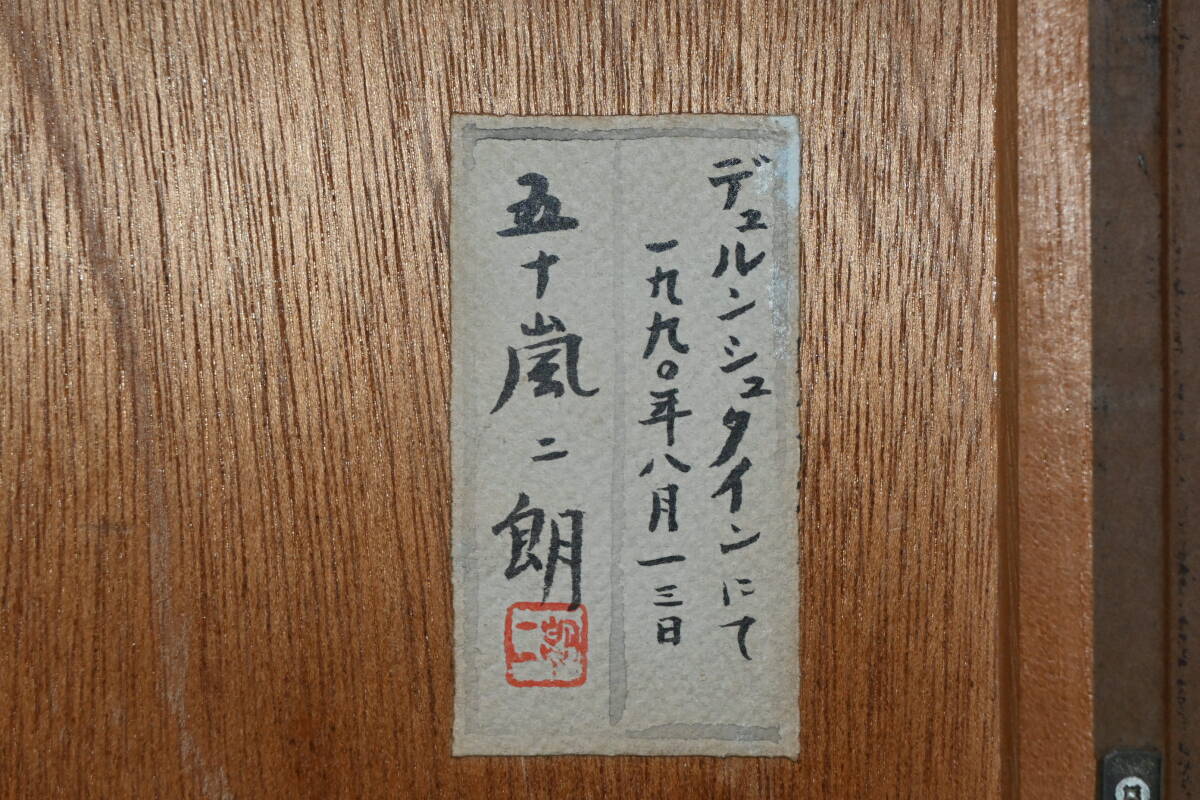 デュルンシュタインにて
一九九〇年八月一三日
五十嵐二朗